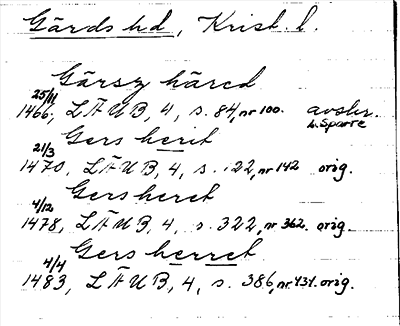 Gärds hd, Krist. l.
Gärsz häred
25/11 1466, LÄUB, 4, s. 84, nr 100. avskr. L. Sparre
Gers herit
21/3 1470, LÄUB, 4, s. 122, nr 142 orig.
Gersheret
4/12 1478, LÄUB, 4, s. 322, nr 362. orig.
Gers herret
4/4 1483, LÄUB, 4, s. 386, nr 431. orig.